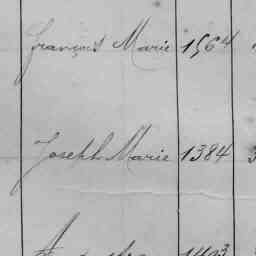 François Marie 1564
Joseph Marie 1384